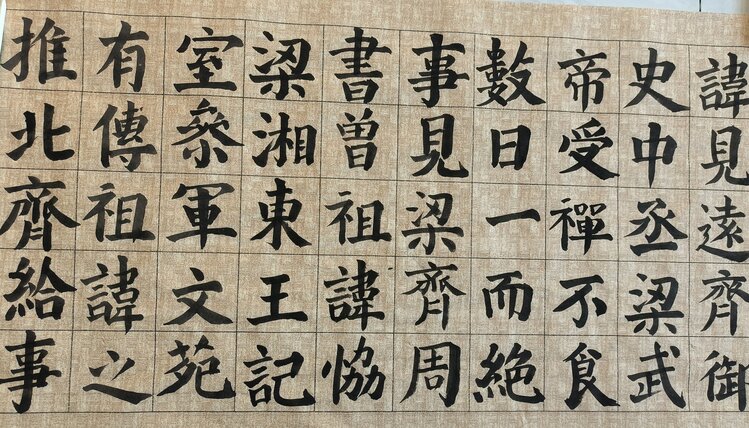 諱見遠齊御
史中丞梁武
帝受禪不食
數日一而絶
事見梁齊周
書曽祖諱恊
梁湘東王記
室叅軍文苑
有傳祖諱之
推北齊給事